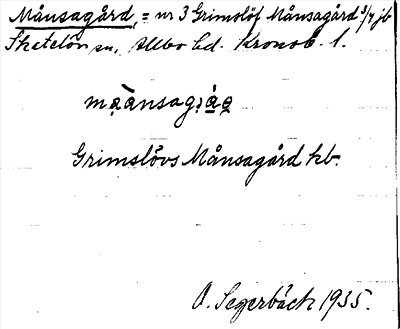 Månsagård, = nr 3 Grimslöf Månsagård 3/4 jb
Skatelöv sn, Allbo hd. Kronob. l.
Grimslövs Månsagård kb.
O. Segerbäck 1935.